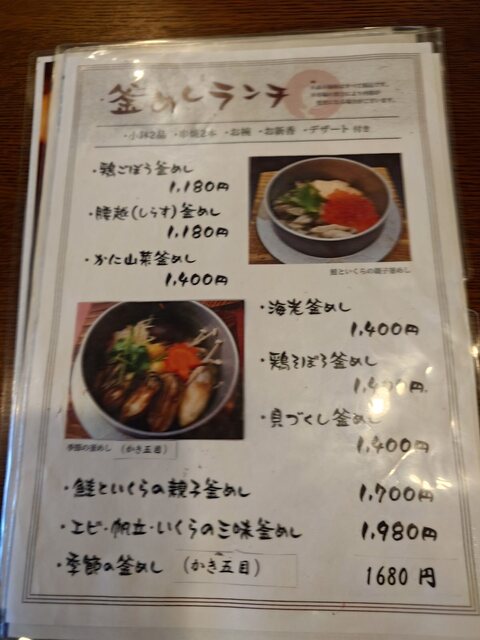 釜めしランチ
・小鉢2品 ・串焼2本 ・お椀 ・お新香 ・デザート 付き
・鶏ごぼう釜めし
1,180円
・腰越(しらす)釜めし
1,180円
・かに山菜釜めし
1,400円
鮭といくらの親子釜めし
・海老釜めし
1,400円
・鶏そぼろ釜めし
・貝づくし釜めし
1,400円
季節の釜めし (かき五目)
・鮭といくらの親子釜めし 1,700円
・エビ・帆立・いくらの三味釜めし 1,980円
・季節の釜めし (かき五目) 1680円